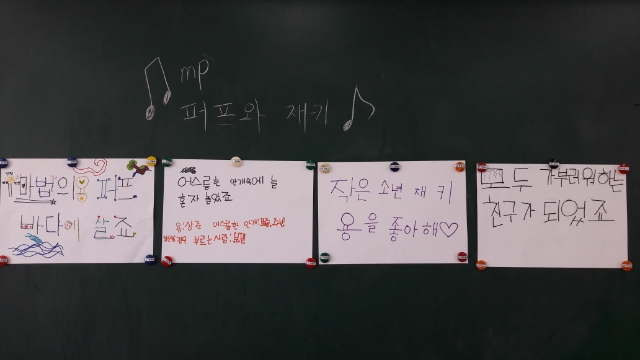 mp
퍼프와 재키
마법의용 퍼프
바다에 살죠
어스름한 안개속에 늘
혼자 놀았죠
어스름한 안개
부르는사람:
작은 소년 재키
용을 좋아해♡
모두 가부러워하는
친구가 되었죠